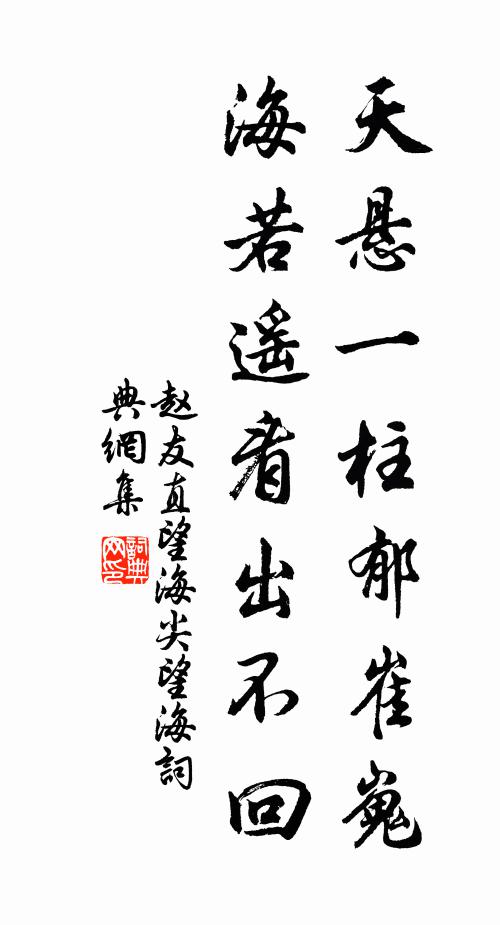 天悬一柱郁崔嵬
海若遥看出不回
赵友直望海尖望海詞
典網集
詞典
网印